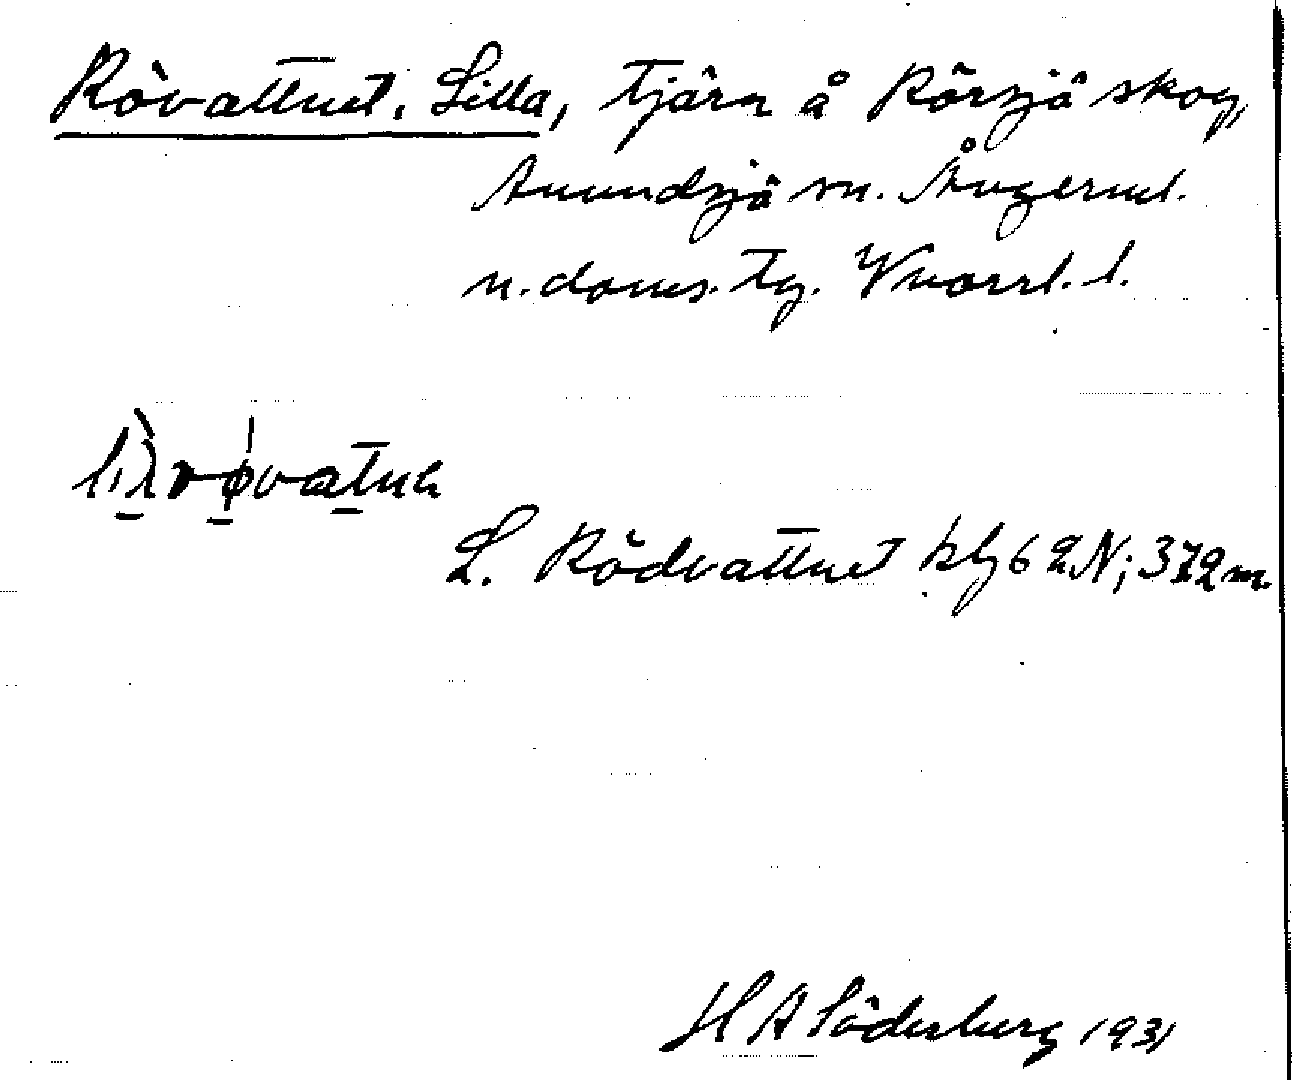 Rövattnet, Lilla, tjärn å Rörsjö skog,
Anundsjö sn. Ångerml.
n. doms. tg. Vnorrl. l.
lìλrø̍vatnə
L. Rödvattnet kbl 62N; 372 m.
H A Söderberg 1931